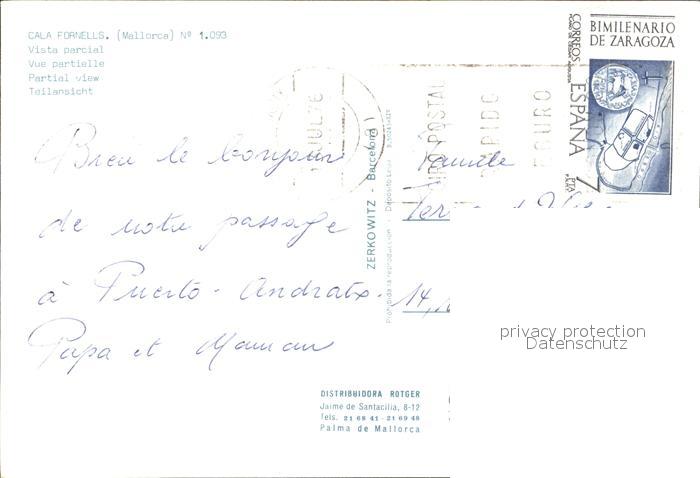 CALA FORNELLS. (Mallorca) Nº 1.093
Vista parcial
Vue partielle
Partial view
Teilansicht
Bien le bonjour
de notre passage
à Puerto-Andratx.
Papa et Maman
ZERKOWITZ - Barcelona
Prohibida la reproducción - Depósito Legal
Famille
14,
JUL 76
POSTAL
BIMILENARIO
DE ZARAGOZA
CORREOS
ESPAÑA
7
PTA
privacy protection
Datenschutz
DISTRIBUIDORA ROTGER
Jaime de Santacilia, 8-12
Tels. 21 68 41 - 21 69 48
Palma de Mallorca